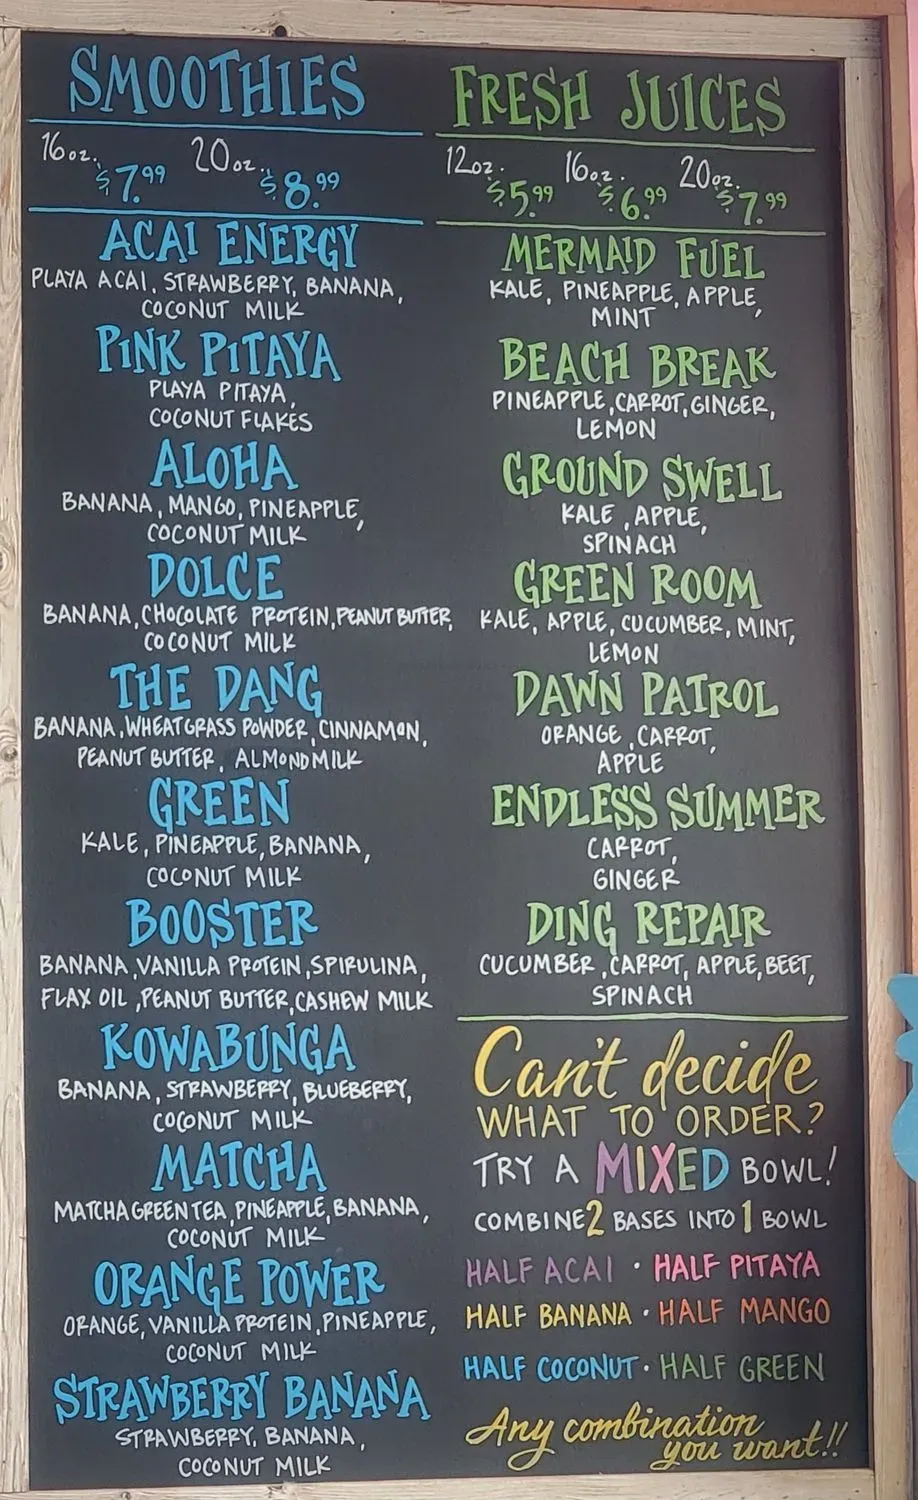 SMOOTHIES
16oz. $7.99 20oz. $8.99
ACAI ENERGY
PLAYA ACAI, STRAWBERRY, BANANA,
COCONUT MILK
PINK PITAYA
PLAYA PITAYA,
COCONUT FLAKES
ALOHA
BANANA, MANGO, PINEAPPLE,
COCONUT MILK
DOLCE
BANANA, CHOCOLATE PROTEIN, PEANUT BUTTER,
COCONUT MILK
THE DANG
BANANA, WHEATGRASS POWDER, CINNAMON,
PEANUT BUTTER, ALMOND MILK
GREEN
KALE, PINEAPPLE, BANANA,
COCONUT MILK
BOOSTER
BANANA, VANILLA PROTEIN, SPIRULINA,
FLAX OIL, PEANUT BUTTER, CASHEW MILK
KOWABUNGA
BANANA, STRAWBERRY, BLUEBERRY,
COCONUT MILK
MATCHA
MATCHA GREEN TEA, PINEAPPLE, BANANA,
COCONUT MILK
ORANGE POWER
ORANGE, VANILLA PROTEIN, PINEAPPLE,
COCONUT MILK
STRAWBERRY BANANA
STRAWBERRY, BANANA,
COCONUT MILK
FRESH JUICES
12oz. $5.99 16oz. $6.99 20oz. $7.99
MERMAID FUEL
KALE, PINEAPPLE, APPLE,
MINT
BEACH BREAK
PINEAPPLE, CARROT, GINGER,
LEMON
GROUND SWELL
KALE, APPLE,
SPINACH
GREEN ROOM
KALE, APPLE, CUCUMBER, MINT,
LEMON
DAWN PATROL
ORANGE, CARROT,
APPLE
ENDLESS SUMMER
CARROT,
GINGER
DING REPAIR
CUCUMBER, CARROT, APPLE, BEET,
SPINACH
Can't decide
WHAT TO ORDER?
TRY A MIXED BOWL!
COMBINE 2 BASES INTO 1 BOWL
HALF ACAI · HALF PITAYA
HALF BANANA · HALF MANGO
HALF COCONUT · HALF GREEN
Any combination
you want!!